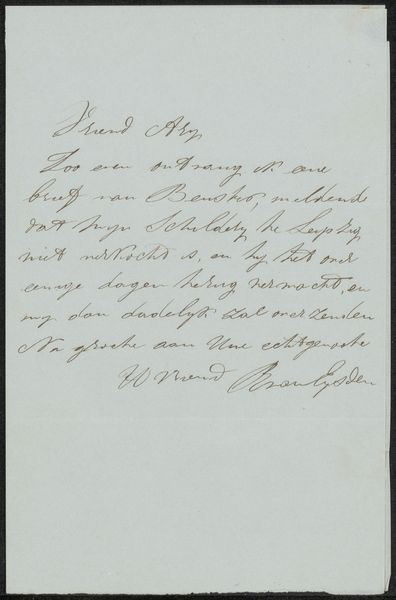 Vriend Ary
Zoo even ontvang ik eene
brief van meldende
dat mijn Schilderij te Leipzig
niet verkocht is, en hij het over
eenige dagen terug verwacht, en
my dan dadelijk zal overzenden
Na groete aan Uwe echtgenoote
UVriend R van Eysden